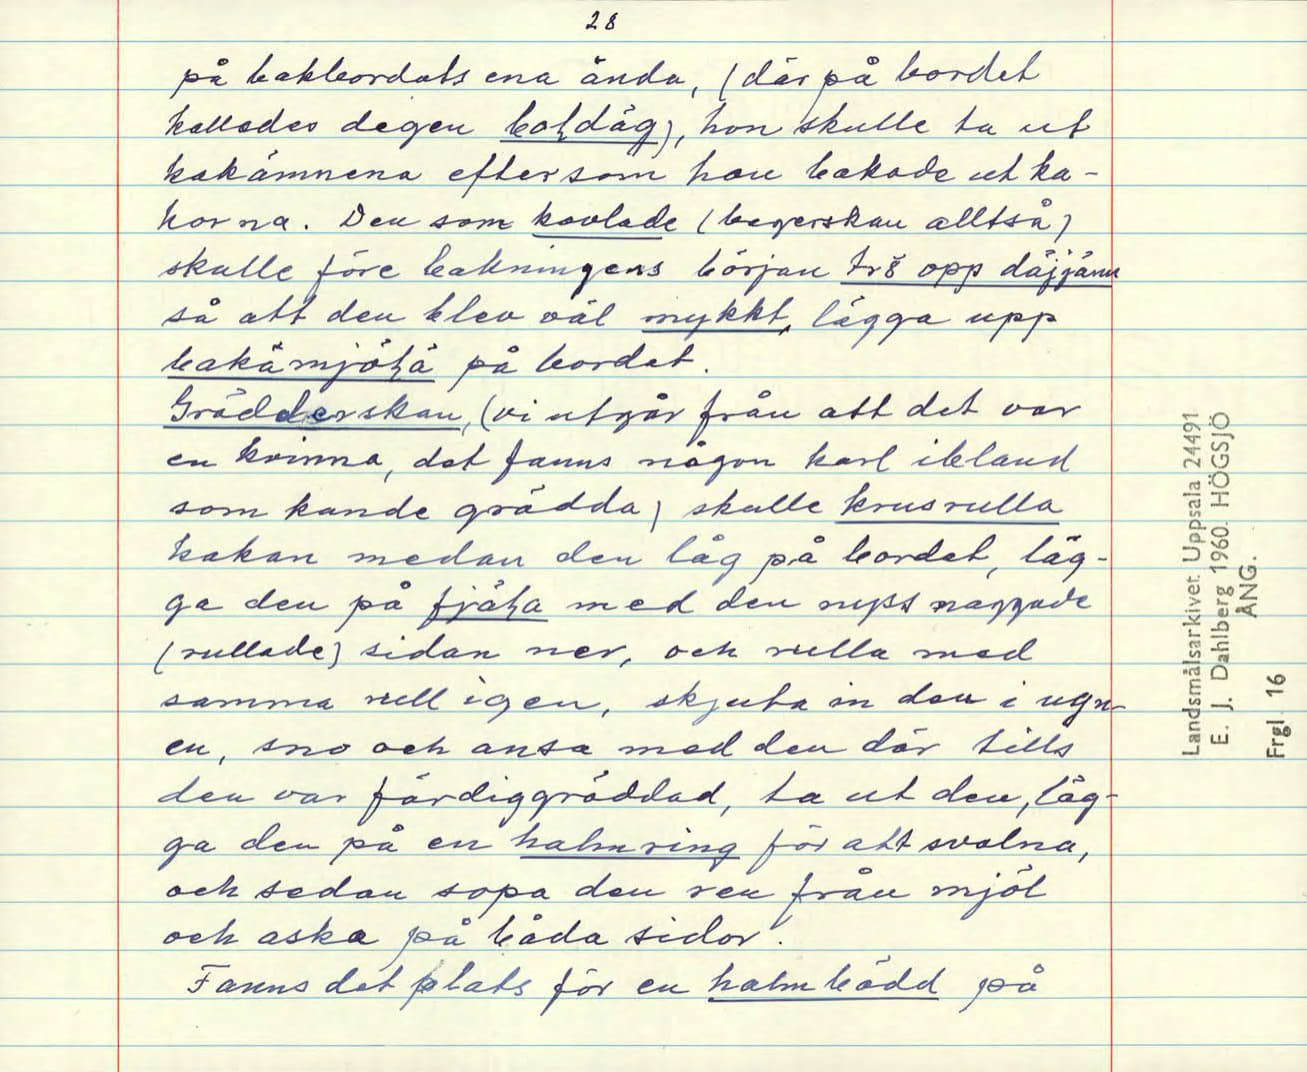 28
på bakbordets ena ända, (där på bordet
kallades degen boḷdäg), hon skulle ta ut
kakämnena eftersom hon bakade ut ka-
korna. Den som kavlade (bagerskan alltså)
skulle före bakningens början trö opp däjjänn
så att den blev väl mykkt, lägga upp
bakämjöḷä på bordet.
Grädderskan, (vi utgår från att det var
en kvinna, det fanns någon karl ibland
som kunde grädda) skulle krusrulla
kakan medan den låg på bordet, läg-
ga den på fjäḷa med den nyss naggade
(rullade) sidan ner, och rulla med
samma rull igen, skjuta in den i ugn-
en, sno och ansa med den där tills
den var färdiggräddad, ta ut den, läg-
ga den på en halmring för att svalna,
och sedan sopa den ren från mjöl
och aska på båda sidor.
Fanns det plats för en halmbädd på
Landsmålsarkivet Uppsala 24491
E. J. Dahlberg 1960. HÖGSJÖ
ÅNG.
Frgl. 16